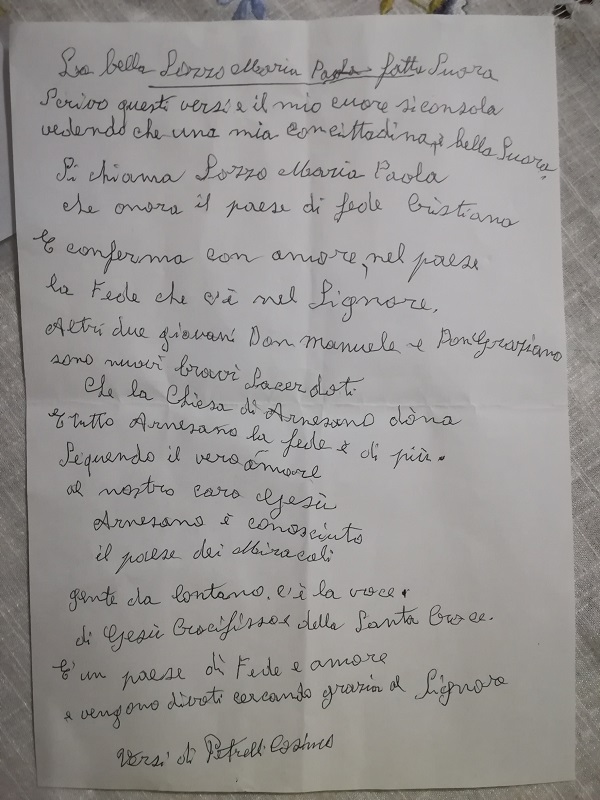 La bella Sozzo Maria Paola fatta Suora
Scrivo questi versi e il mio cuore si consola
vedendo che una mia concittadina, è bella Suora.
Si chiama Sozzo Maria Paola
che onora il paese di fede Cristiana
E conferma con amore, nel paese
la Fede che c'è nel Signore.
Altri due giovani Don Manuele e Don Graziano
sono nuovi bravi Sacerdoti
Che la Chiesa di Arnesano dòna
e tutto Arnesano la fede è di più.
Seguendo il vero amore
al nostro caro Gesù
Arnesano è conosciuto
il paese dei Miracoli
gente da lontano, c'è la voce.
di Gesù Crocifisso e della Santa Croce.
E' un paese di Fede e amore
e vengono divoti cercando grazia al Signore
Versi di Petrelli Cosimo